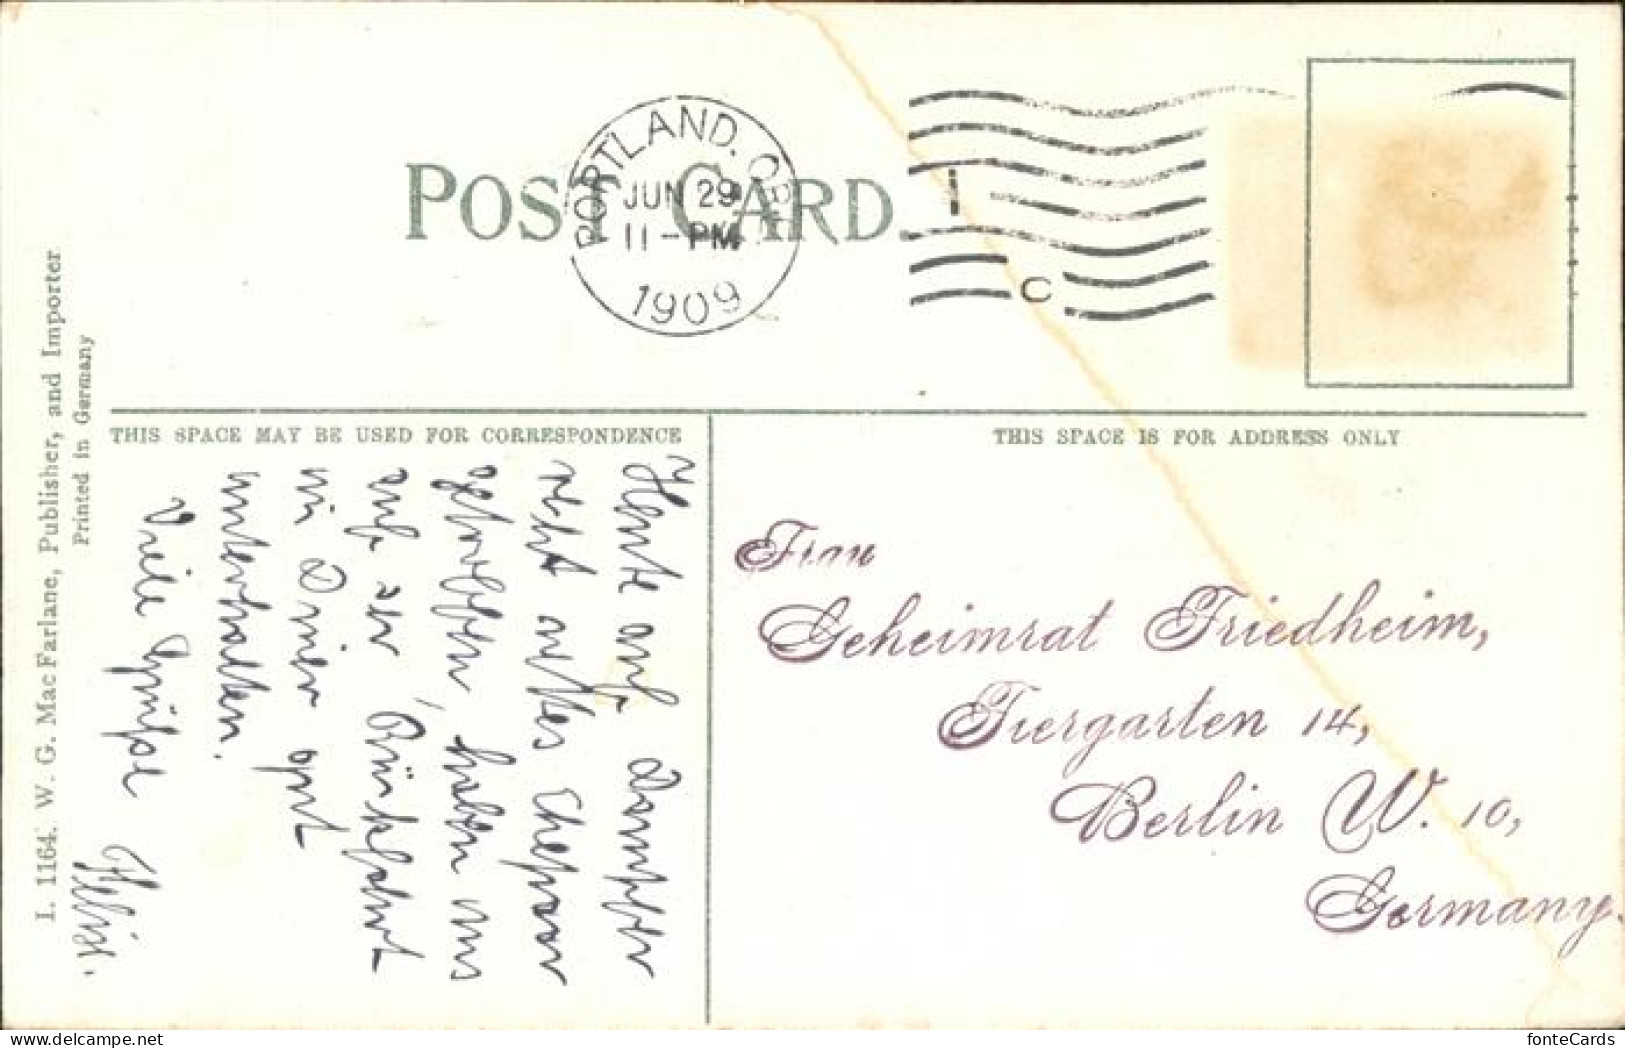 POST CARD.
PORTLAND, ORE.
JUN 29
11 - PM
1909
C
I. 1164. W. G. Mac Farlane, Publisher, and Importer
Printed in Germany
THIS SPACE MAY BE USED FOR CORRESPONDENCE
THIS SPACE IS FOR ADDRESS ONLY
Heute auf Dampfer
recht nettes Ehepaar
getroffen, haben uns
auf der Rückfahrt
gut
unterhalten.
Viele Grüße
Frau
Geheimrat Friedheim,
Tiergarten 14,
Berlin W. 10,
Germany.
fonteCards